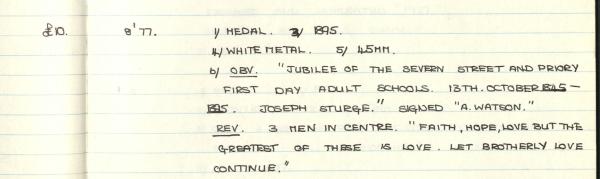 £10. 8'77. 1/ MEDAL. 3/ 1895.
4/ WHITE METAL. 5/ 45MM.
6/ OBV. "JUBILEE OF THE SEVERN STREET AND PRIORY
FIRST DAY ADULT SCHOOLS. 13TH. OCTOBER 1845 –
1895. JOSEPH STURGE." SIGNED "A. WATSON."
REV. 3 MEN IN CENTRE. "FAITH, HOPE, LOVE BUT THE
GREATEST OF THESE IS LOVE. LET BROTHERLY LOVE
CONTINUE."